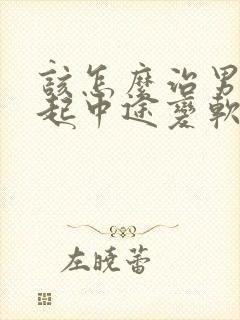 該怎麼治男
起中途變軟
左曉蕾